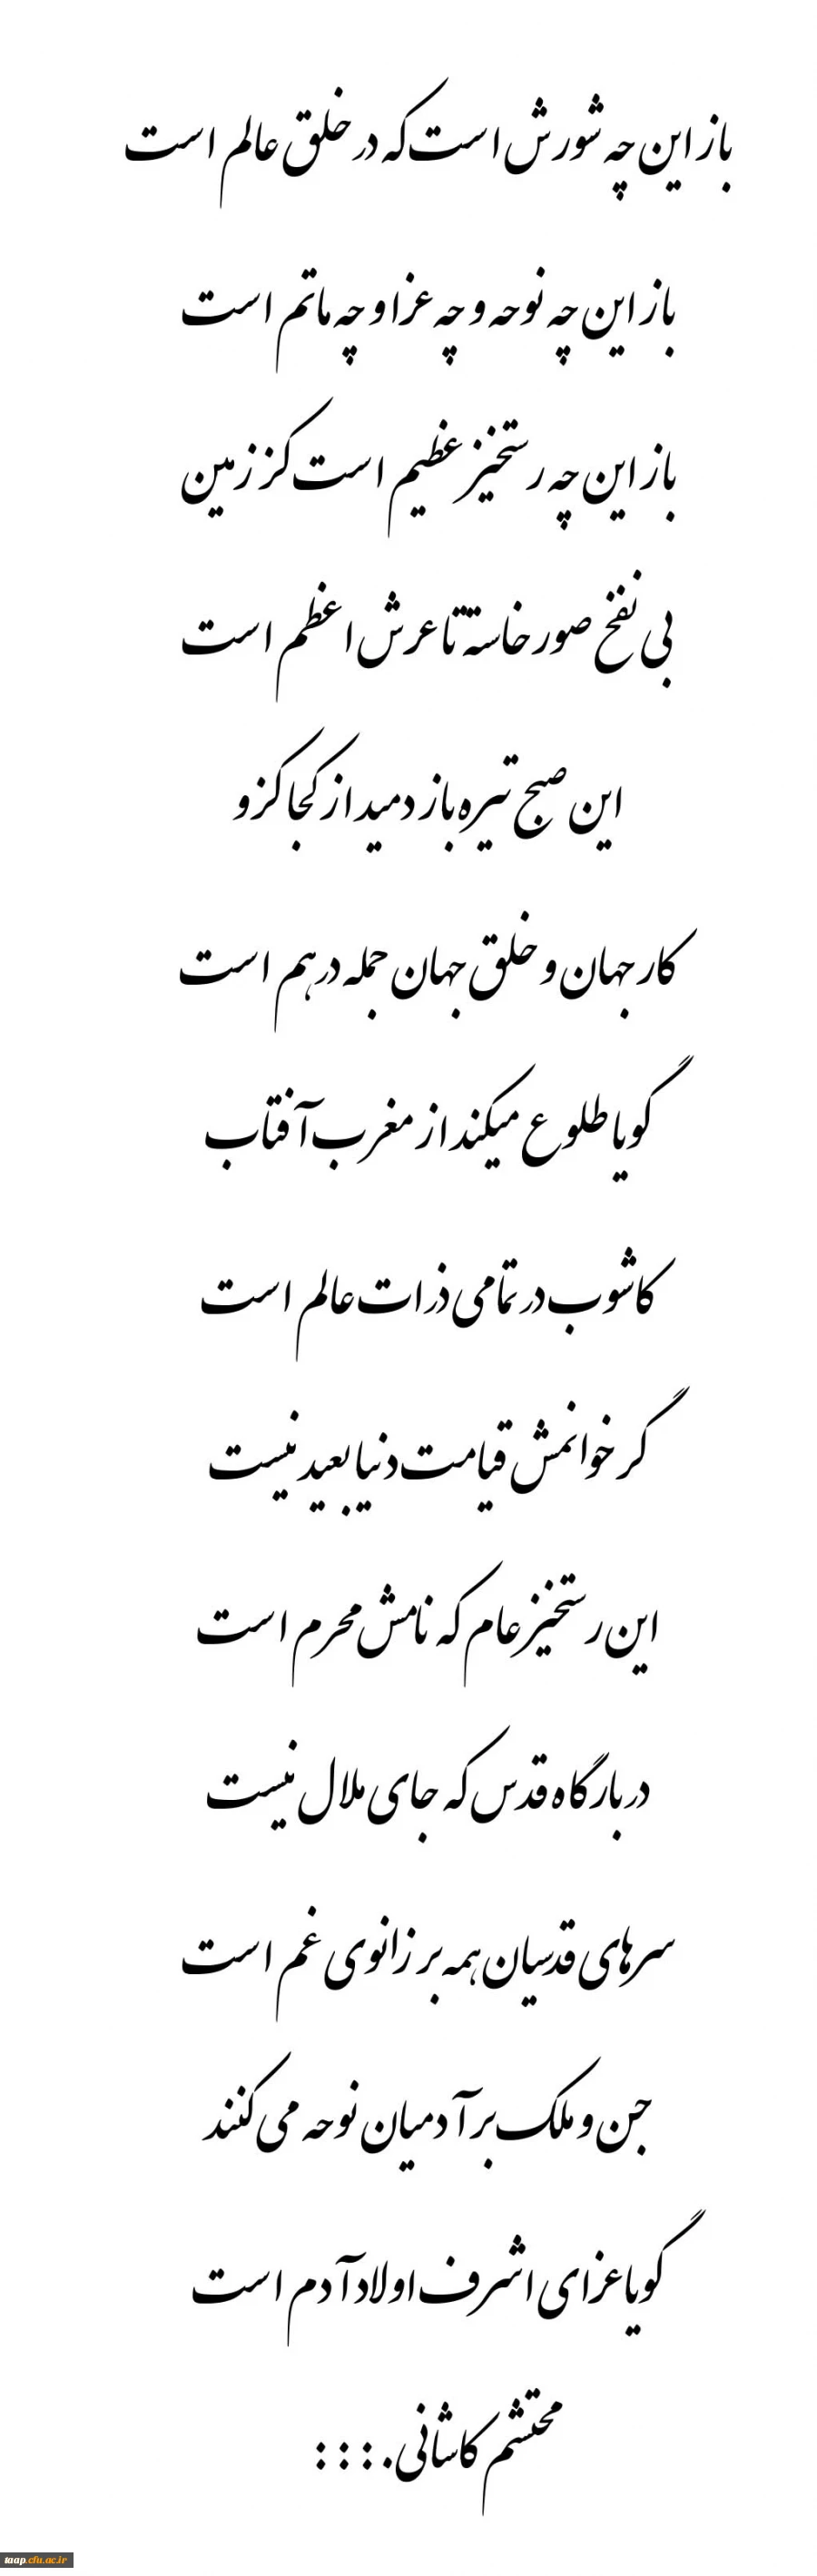 باز این چه شورش است که در خلق عالم است
باز این چه نوحه و چه عزا و چه ماتم است
باز این چه رستخیز عظیم است کز زمین
بی نفخ صور خاسته تا عرش اعظم است
این صبح تیره باز دمید از کجا کزو
کار جهان و خلق جهان جمله درهم است
گویا طلوع میکند از مغرب آفتاب
کاشوب در تمامی ذرات عالم است
گر خوانمش قیامت دنیا بعید نیست
این رستخیز عام که نامش محرم است
در بارگاه قدس که جای ملال نیست
سرهای قدسیان همه بر زانوی غم است
جن و ملک بر آدمیان نوحه می کنند
گویا عزای اشرف اولاد آدم است
محتشم کاشانی.:::
taap.cfu.ac.ir